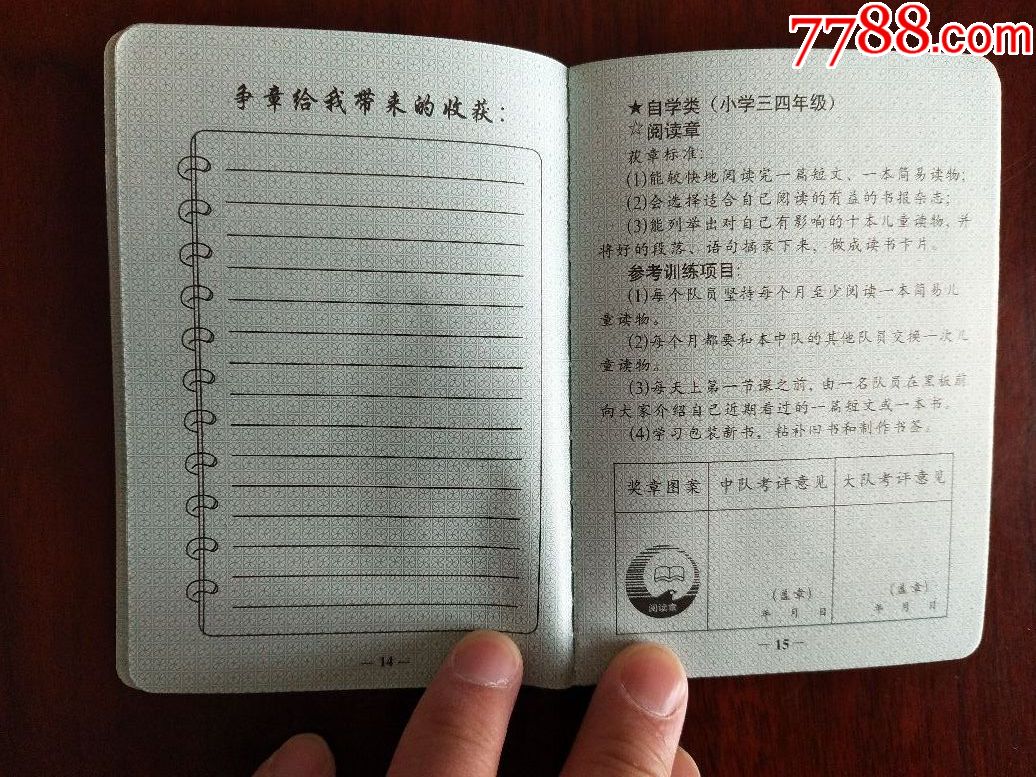 7788.com
争章给我带来的收获：
— 14 —
★自学类（小学三四年级）
☆阅读章
获章标准：
(1)能较快地阅读完一篇短文、一本简易读物；
(2)会选择适合自己阅读的有益的书报杂志；
(3)能列举出对自己有影响的十本儿童读物，并
将好的段落、语句摘录下来，做成读书卡片。
参考训练项目：
(1)每个队员坚持每个月至少阅读一本简易儿
童读物。
(2)每个月都要和本中队的其他队员交换一次儿
童读物。
(3)每天上第一节课之前，由一名队员在黑板前
向大家介绍自己近期看过的一篇短文或一本书。
(4)学习包装新书，粘补旧书和制作书签。
奖章图案 中队考评意见 大队考评意见
阅读章
（盖章） （盖章）
年 月 日 年 月 日
— 15 —